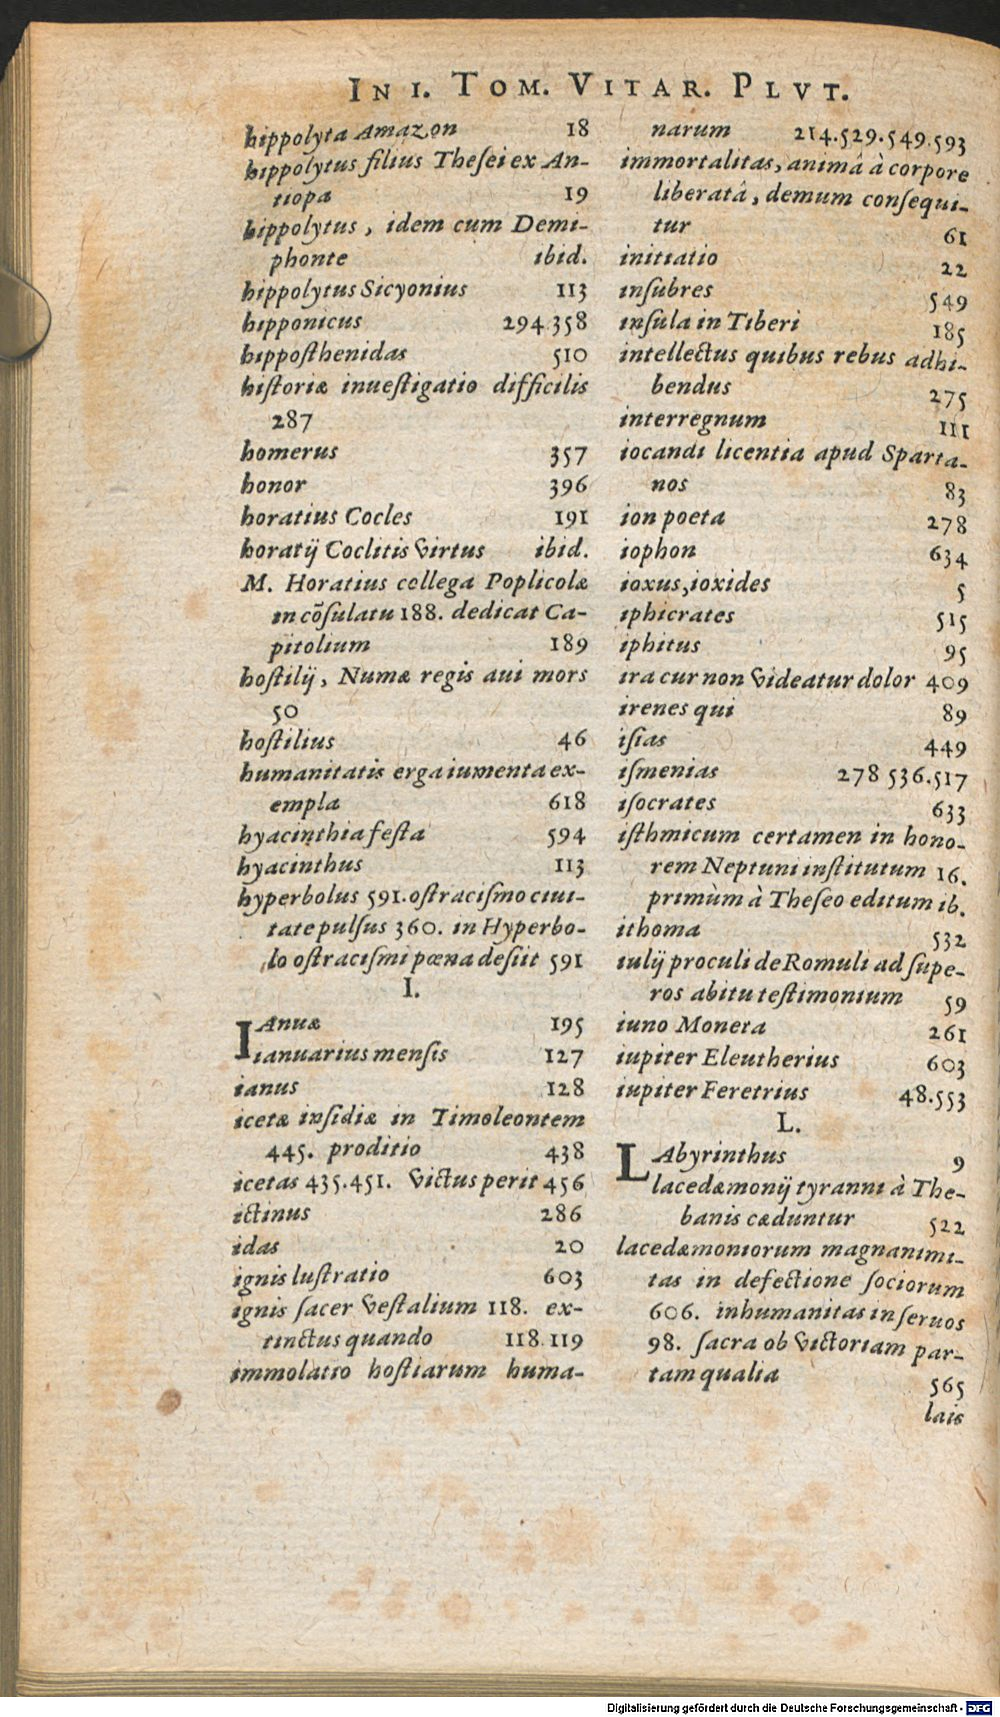 IN I. TOM. VITAR. PLVT.
hippolyta Amazon 18
hippolytus filius Thesei ex An-
tiopa 19
hippolytus, idem cum Demi-
phonte ibid.
hippolytus Sicyonius 113
hipponicus 294.358
hipposthenidas 510
historiæ inuestigatio difficilis
287
homerus 357
honor 396
horatius Cocles 191
horatij Coclitis virtus ibid.
M. Horatius collega Poplicolæ
in cõsulatu 188. dedicat Ca-
pitolium 189
hostilij, Numæ regis aui mors
50
hostilius 46
humanitatis erga iumenta ex-
empla 618
hyacinthia festa 594
hyacinthus 113
hyperbolus 591. ostracismo ciui-
tate pulsus 360. in Hyperbo-
lo ostracismi pœna desiit 591
I.
IAnuæ 195
ianuarius mensis 127
ianus 128
icetæ insidiæ in Timoleontem
445. proditio 438
icetas 435.451. victus perit 456
ictinus 286
idas 20
ignis lustratio 603
ignis sacer vestalium 118. ex-
tinctus quando 118.119
immolatio hostiarum huma-
narum 214.529.549.593
immortalitas, animâ à corpore
liberatâ, demum consequi-
tur 61
initiatio 22
insubres 549
insula in Tiberi 185
intellectus quibus rebus adhi-
bendus 275
interregnum 111
iocandi licentia apud Sparta-
nos 83
ion poeta 278
iophon 634
ioxus, ioxides 5
iphicrates 515
iphitus 95
ira cur non videatur dolor 409
irenes qui 89
isias 449
ismenias 278 536.517
isocrates 633
isthmicum certamen in hono-
rem Neptuni institutum 16.
primùm à Theseo editum ib.
ithoma 532
iulij proculi de Romuli ad supe-
ros abitu testimonium 59
iuno Moneta 261
iupiter Eleutherius 603
iupiter Feretrius 48.553
L.
LAbyrinthus 9
lacedæmonij tyranni à The-
banis cæduntur 522
lacedæmoniorum magnanimi-
tas in defectione sociorum
606. inhumanitas in seruos
98. sacra ob victoriam par-
tam qualia 565
lais
Digitalisierung gefördert durch die Deutsche Forschungsgemeinschaft - DFG